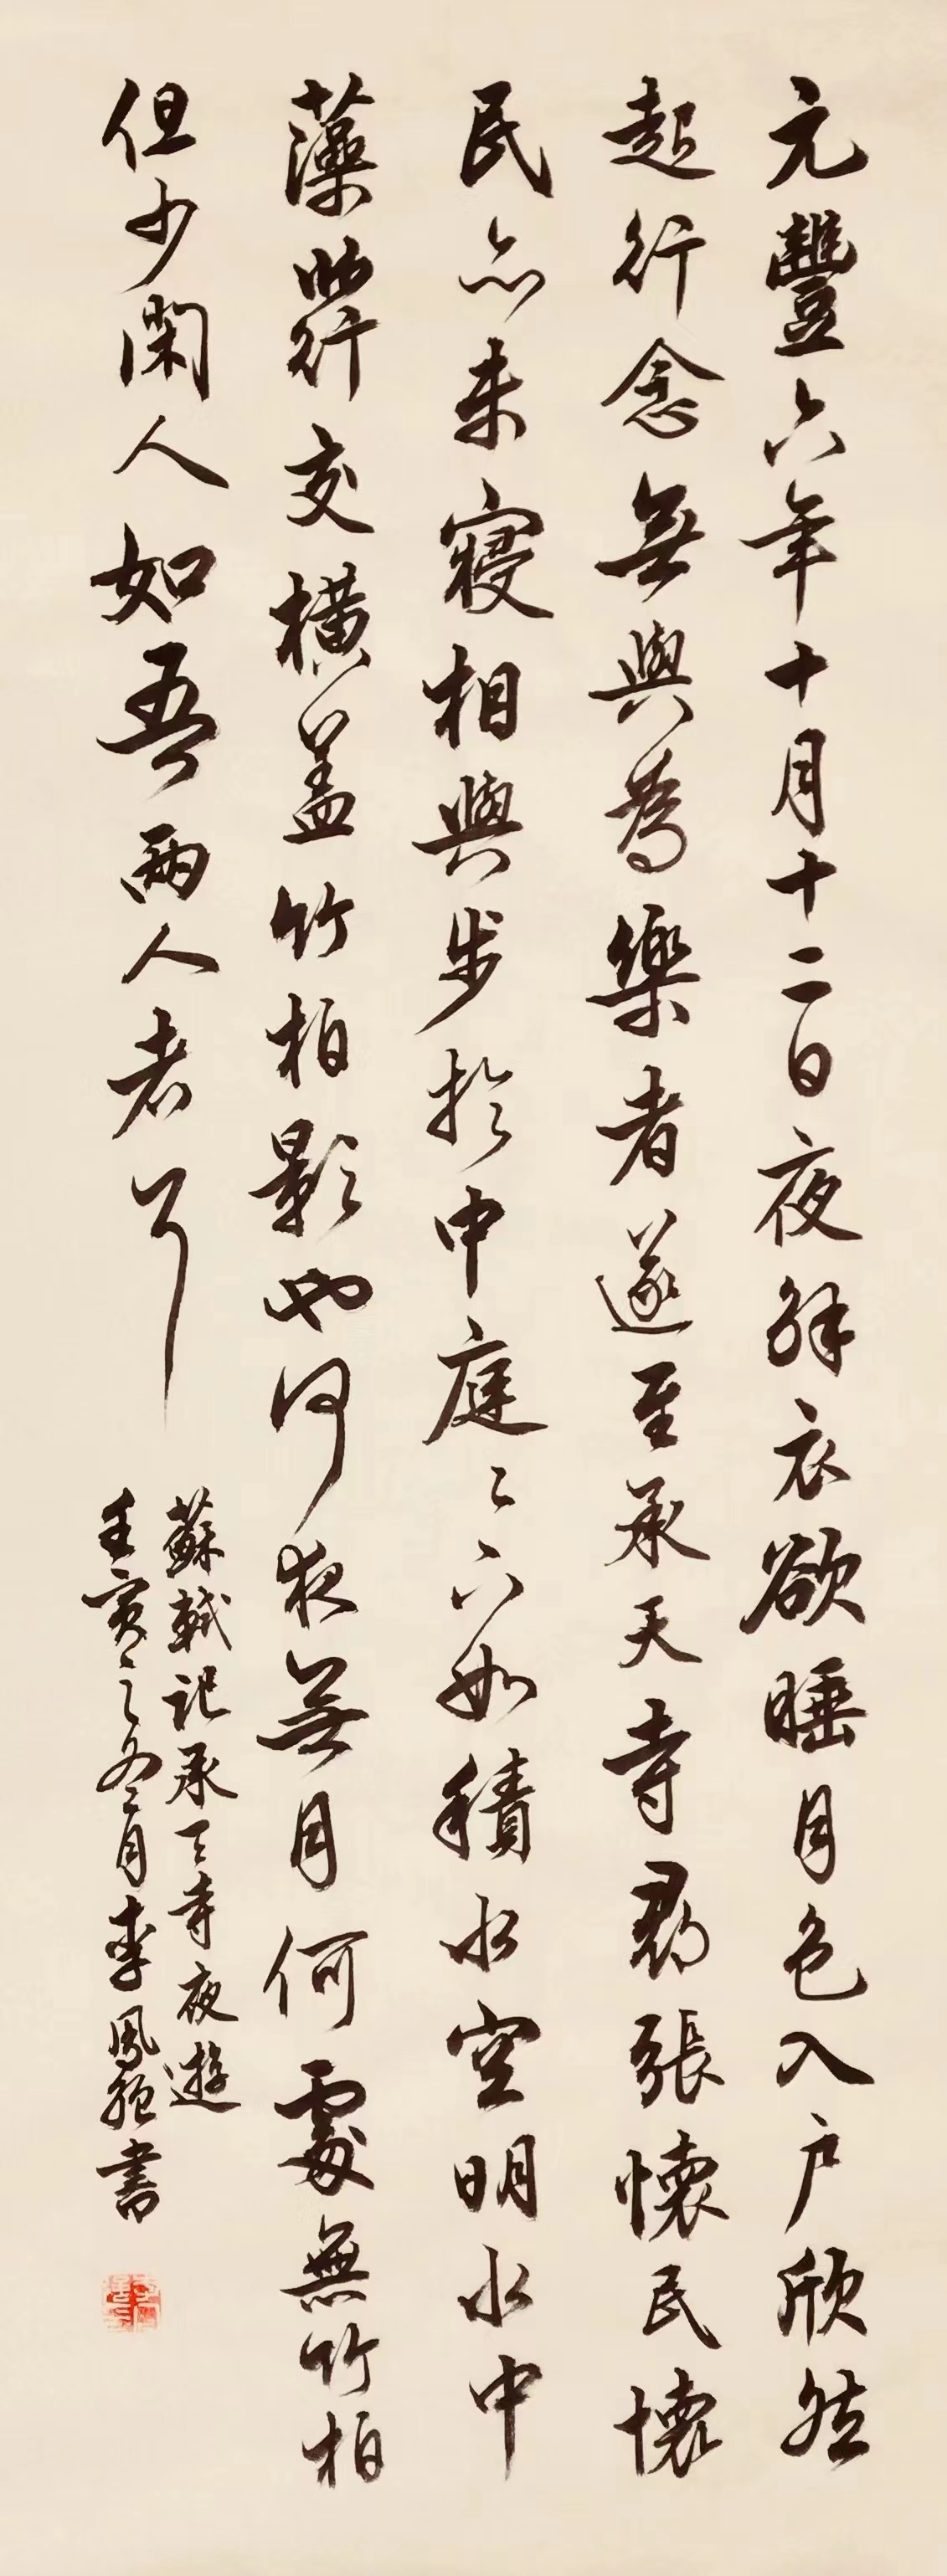 元豐六年十月十二日夜解衣欲睡月色入户欣然
起行念無與為樂者遂至承天寺尋張懷民懷
民亦未寢相與步於中庭〻下如積水空明水中
藻荇交橫蓋竹柏影也何夜無月何處無竹柏
但少閑人如吾兩人者耳
蘇軾記承天寺夜遊
壬寅之冬月李鳳書